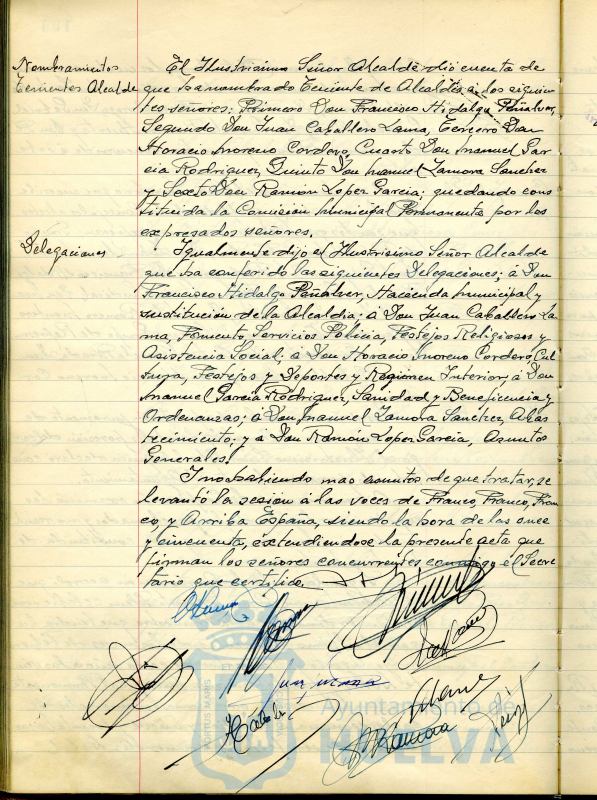 Nombramientos
Tenientes Alcalde
El Ilustrisimo Señor Alcalde dio cuenta de
que ha nombrado Teniente de Alcaldia a los siguien
tes señores: Primero Don Francisco Hidalgo Peñalver,
Segundo Don Juan Caballero Lama, Tercero Don
Horacio Moreno Cordero, Cuarto Don Manuel Gar
cia Rodriguez, Quinto Don Manuel Zamora Sanchez
y Sexto Don Ramón Lopez Garcia; quedando cons
tituida la Comisión Municipal Permanente por los
expresados señores.
Delegaciones
Igualmente dijo el Ilustrisimo Señor Alcalde
que ha conferido las siguientes Delegaciones; á Don
Francisco Hidalgo Peñalver, Hacienda Municipal y
sustitución de la Alcaldia; á Don Juan Caballero La
ma, Fomento, Servicios Policia, Festejos Religiosos y
Asistencia Social; á Don Horacio Moreno Cordero, Cul
tura, Festejos y Deportes y Regimen Interior; á Don
Manuel Garcia Rodriguez, Sanidad y Beneficencia y
Ordenanzas; á Don Manuel Zamora Sanchez, Abas
tecimiento; y a Don Ramón Lopez Garcia, Asuntos
Generales.
I no habiendo mas asuntos de que tratar, se
levantó la sesión á las voces de Franco, Franco, Fran
co, y Arriba España, siendo la hora de las once
y cincuenta, extendiendose la presente acta que
firman los señores concurrentes conmigo el Secre
tario que certifico.
PORTUS MARIS
Ayuntamiento de
HUELVA